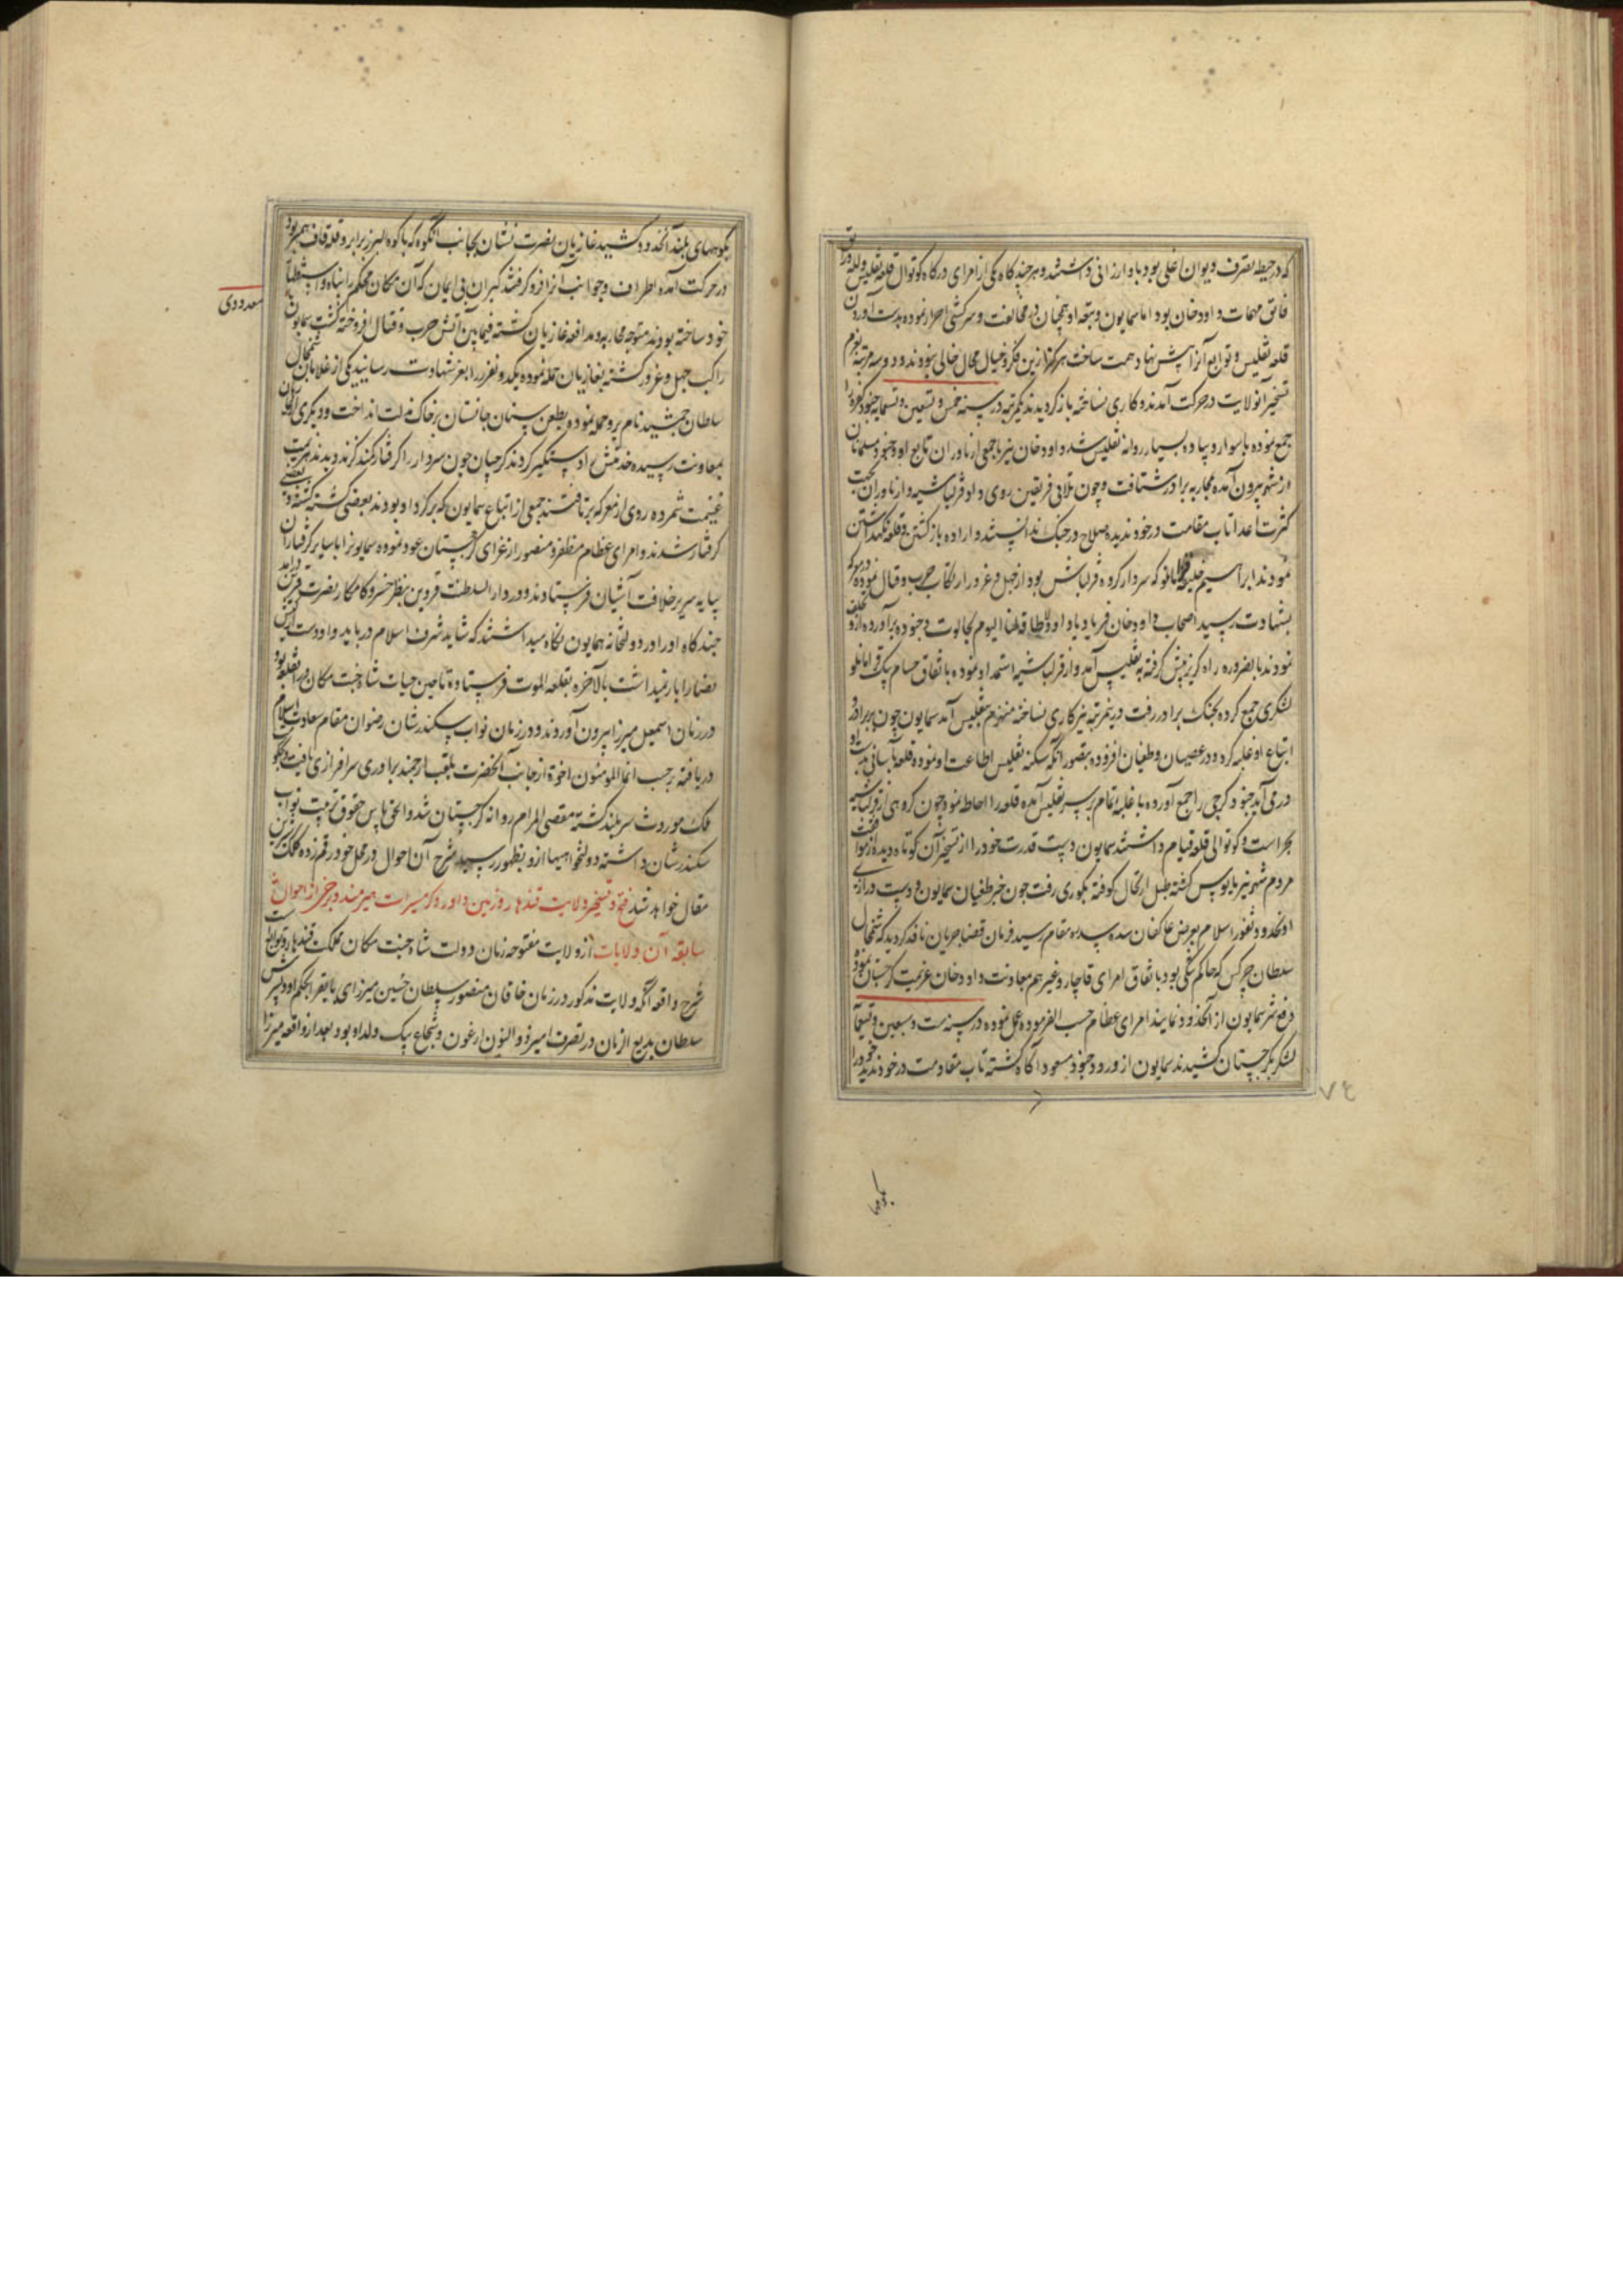 که در حیطه تصرف دیوان اعلی بود باو ارزانی داشتند و هر چند کاه یکی از امرای درکاه کوتوال قلعه تفلیس و لله و رتق
فاتق مهمات داود خان بود اما سمایون و تبعه او همچنان در مخالفت و سرکشی اصرار نموده بدست آوردن
قلعه تفلیس و توابع آنرا پیش نهاد همت ساخت هرکز ازین فکر و خیال محال خالی نبودند و دو سه مرتبه بعزم
تسخیر آنولایت در حرکت آمدند و کاری نساخته باز کردیدند یکمرتبه در سنه خمس و تسعین و تسعمایه جنود کفره را
جمع نموده با سوار و پیاده بسیار روانه تفلیس شد داود خان نیز با جمعی از ناوران تابع او و جنود مسلمانان
از شهر بیرون آمده بمحاربه برادر شتافت و چون تلاقی فریقین روی داد قزلباشیه و ازناوران بجهت
کثرت اعدا تاب مقاومت در خود ندیده صلاح در جنک ندانستند و اراده باز کشتن و قلعه نکهداشتن
نمودند ابراهیم خلیفه المانلو که سردار کروه قزلباش بود از جهل و غرور ارتکاب حرب و قتال نموده در معرکه
بشهادت رسید اصحاب داود خان فریاد یا داود لا طاقة لنا الیوم بجالوت و جنوده برآورده ازو تخلف
نمودند بالضروره راه کریز پیش کرفته به تفلیس آمد و از قزلباشیه استمداد نموده باتفاق حسام بیک قرامانلو
لشکری جمع کرده بجنک برادر رفت درینمرتبه نیز کاری نساخته منهزم بتفلیس آمد سمایون چون بر برادر و
اتباع او غلبه کرد و در عصیان و طغیان افزوده بتصور آنکه سکنه تفلیس اطاعت او نموده قلعه بآسانی بدست او
در می آید جنود کرجی را جمع آورده با غلبه تمام بر سر تفلیس آمده قلعه را احاطه نمود چون کروهی از قزلباشیه
بحراست و کوتوالی قلعه قیام داشتند سمایون دست قدرت خود را از تسخیر آن کوتاه دیده از موافقت
مردم شهر نیز مایوس کشته طبل ارتحال کوفته بکوری رفت چون خبر طغیان سمایون و دست درازی
او بحدود ثغور اسلام بعرض عاکفان سده سدره مقام رسید فرمان قضا جریان نافذ کردید که شمخال
سلطان چرکس که حاکم شکی بود باتفاق امرای قاجار و غیرهم بمعاونت داود خان عزیمت کرجستان نموده
دفع شر سمایون از آنحدود نمایند امرای عظام حسب الفرموده عمل نموده در سنه ست و سبعین و تسعمآ
لشکر بکرجستان کشیدند سمایون از ورود جنود مسعود آکاه کشته تاب مقاومت در خود ندید خود را
بکوهها
۷٤
بکوههای بلند آنحدود کشید غازیان نصرت نشان بجانب آنکوه که با کوه البرز برابر و قله قاف همسر بود
در حرکت آمده اطراف و جوانب آنرا فرو کرفتند کبران بی ایمان که آن مکان محکم را پناه و استظهار
خود ساخته بودند متوجه محاربه و مدافعه غازیان کشته فیمابین آتش حرب و قتال افروخته کشت سمایون
معدودی
راکب جهل و غرور کشته بغازیان حمله نموده یکدو نفر را بعز شهادت رسانید یکی از غلامان شمخال
سلطان جمشید نام برو حمله نموده بطعن سنان جانستان بر خاک مذلت انداخت و دیکری از آن
بمعاونت رسیده خدمتش او دستکیر کردند کرجیان چون سردار را کرفتار کمند کزند دیدند هزیمت
غنیمت شمرده روی از معرکه برتافتند جمعی از اتباع سمایون که بر کرد او بودند بعضی کشته کشتند و بعضی
کرفتار شدند و امرای عظام مظفر و منصور از غزای کرجستان عود نموده سمایونرا با سایر کرفتاران
بپایه سریر خلافت آشیان فرستادند و در دارالسلطنت قزوین بنظر خسرو کامکار نصرت قرین درآمد
چند کاه او را در دولتخانه همایون نکاه میداشتند که شاید شرف اسلام دریابد و او دست از کیش
نصارا باز نمیداشت بالآخره بقلعه الموت فرستاده تا حین حیات شاه جنت مکان در آن قلعه بود
در زمان اسمعیل میرزا بیرون آوردند و در زمان نواب سکندر شان رضوان مقام سعادت اسلام
دریافته برحسب انما المومنون اخوة از جانب آنحضرت بلقب ارجمند برادری سرافرازی یافت و بحکومت
ملک موروث سر بلند کشته مقضی المرام روانه کرجستان شد و الحق پاس حقوق تربیت نواب
سکندر شان داشته دولتخواهیها ازو بظهور رسید شرح آن احوال در محل خود رقم زده کلک شیرین
مقال خواهد شد فتح و تسخیر ولایت قندهار و زمین داور و کرمسیرات هیرمند و برخی از احوال
سابقه آن ولایات از ولایت مفتوحه زمان دولت شاه جنت مکان مملکت قندهار و توابع است
شرح واقعه آنکه ولایت مذکور در زمان خاقان منصور سلطان حسین میرزای بایقرا بحکم او و پسرش
سلطان بدیع الزمان در تصرف امیر ذوالنون ارغون و شجاع بیک ولد او بود بعد از واقعه میرزا